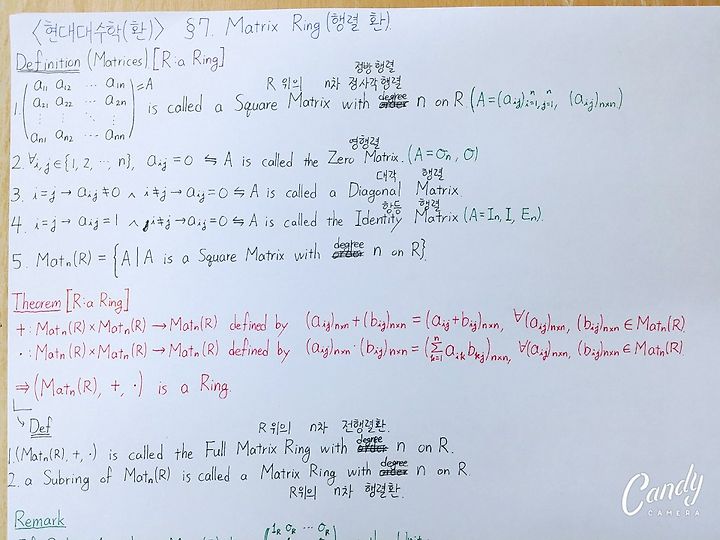 <현대대수학(환)> §7. Matrix Ring (행렬 환).
Definition (Matrices) [R:a Ring]
정방행렬
R 위의 n차 정사각행렬
1. (a₁₁ a₁₂ ⋯ a₁ₙ
a₂₁ a₂₂ ⋯ a₂ₙ
⋮ ⋮ ⋱ ⋮
aₙ₁ aₙ₂ ⋯ aₙₙ) = A is called a Square Matrix with degree n on R (A=(aᵢⱼ)ⁿᵢ₌₁,ⁿⱼ₌₁, (aᵢⱼ)ₙₓₙ)
영행렬
2. ∀i,j∈{1, 2, ⋯, n}, aᵢⱼ=0 ⇆ A is called the Zero Matrix. (A=Oₙ, O)
대각 행렬
3. i=j → aᵢⱼ≠0 ∧ i≠j → aᵢⱼ=0 ⇆ A is called a Diagonal Matrix
항등 행렬
4. i=j → aᵢⱼ=1 ∧ i≠j → aᵢⱼ=0 ⇆ A is called the Identity Matrix (A=Iₙ, I, Eₙ).
5. Matₙ(R) = {A | A is a Square Matrix with degree n on R}.
Theorem [R:a Ring]
+ : Matₙ(R) × Matₙ(R) → Matₙ(R) defined by (aᵢⱼ)ₙₓₙ + (bᵢⱼ)ₙₓₙ = (aᵢⱼ + bᵢⱼ)ₙₓₙ, ∀(aᵢⱼ)ₙₓₙ, (bᵢⱼ)ₙₓₙ ∈ Matₙ(R)
· : Matₙ(R) × Matₙ(R) → Matₙ(R) defined by (aᵢⱼ)ₙₓₙ · (bᵢⱼ)ₙₓₙ = (Σⁿₖ₌₁ aᵢₖbₖⱼ)ₙₓₙ, ∀(aᵢⱼ)ₙₓₙ, (bᵢⱼ)ₙₓₙ ∈ Matₙ(R).
⇒ (Matₙ(R), +, ·) is a Ring.
Def
R위의 n차 전행렬환.
1. (Matₙ(R), +, ·) is called the Full Matrix Ring with degree n on R.
2. a Subring of Matₙ(R) is called a Matrix Ring with degree n on R
R위의 n차 행렬환.
Remark
Candy
CAMERA